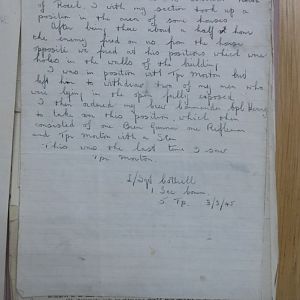 of Reest, I with my section took up a
position in the area of some houses.
After being there about a half hour
the enemy fired on us from the house
opposite we fired at his positions which were
holes in the walls of the building
I was in position with Tpr Morton but
left him to withdraw two of my men who
were lying in the open fully exposed
I then ordered my commander Cpl
to take over this position, which then
consisted of one Bren Gunner one Rifleman
and Tpr Morton with a Sten
This was the last time I saw
Tpr Morton
L/Sgt
1 Sec
5 Tp. 3/3/45